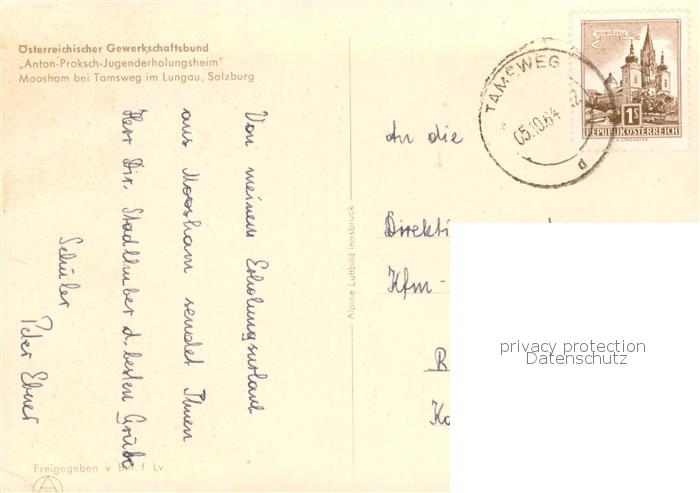 Österreichischer Gewerkschaftsbund
„Anton-Proksch-Jugenderholungsheim"
Moosham bei Tamsweg im Lungau, Salzburg
Von meinem Erholungsurlaub
aus Moosham sendet Ihnen
Herr Dir. Stadlhuber d. besten Grüße
Schüler
Peter Ebner
Freigegeben v. f. Lv.
Alpine Luftbild Innsbruck
TAMSWEG
05.10.64
MARIAZELL
1S
REPUBLIK ÖSTERREICH
An die
Direkti
Kfm-
privacy protection
Datenschutz